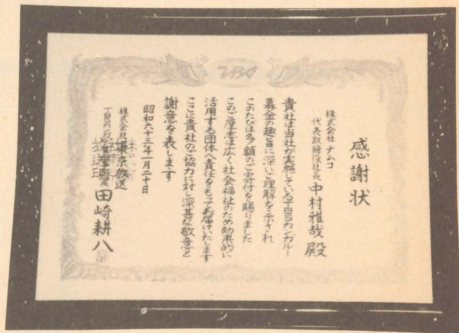 TBS
感謝状
株式会社 ナムコ
代表取締役社長 中村雅哉 殿
貴社は当社が実施しているTBSカンガルー
募金の趣旨に深いご理解を示され
このたびは多額のご寄付を賜りました
このご厚志は広く社会福祉のため効果的に
活用する団体へ責任をもってお届けいたします
ここに貴社のご協力に対し深甚な敬意と
謝意を表します
昭和六十三年一月二十日
株式会社 東京放送
田崎耕八